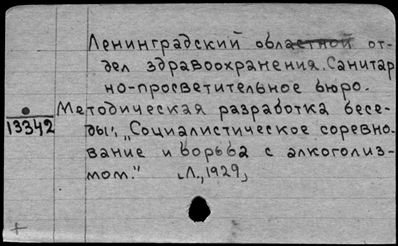 Ленинградский областной от-
дел здравоохранения. Санитар
но-просветительное бюро.
Методическая разработка бесе-
13342
ды: „Социалистическое соревно-
вание и борьба с алкоголиз-
мом." Л., 1929,